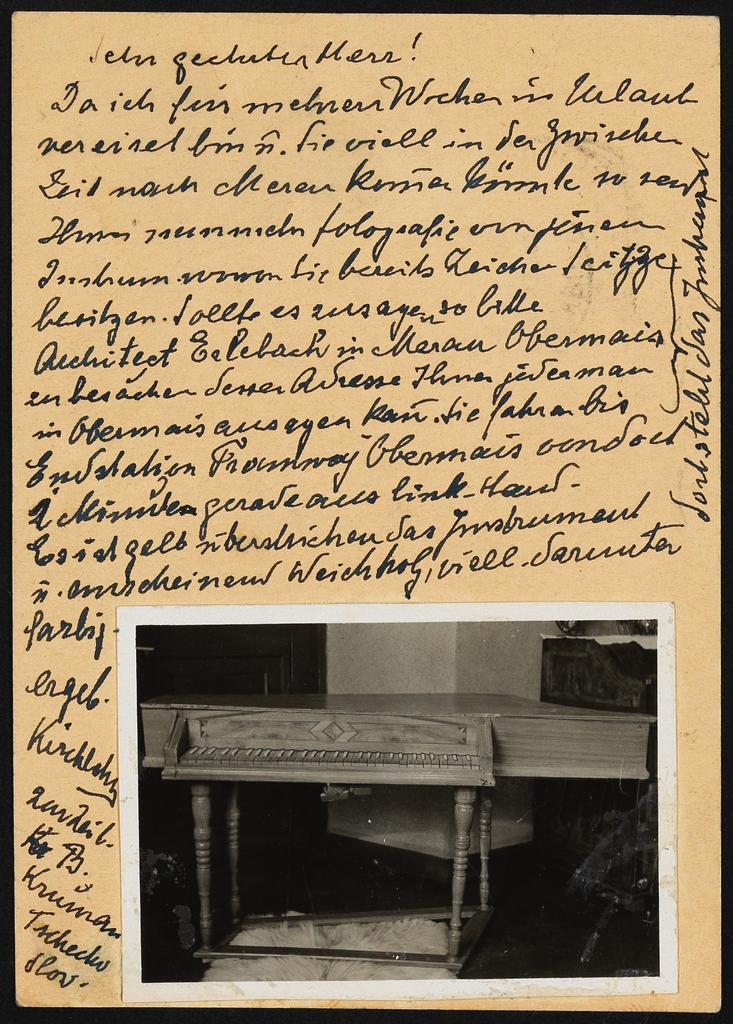 Sehr geehrter Herr!
Da ich für mehrere Wochen in Urlaub
vereist bin u. Sie viell in der Zwischen
Zeit nach Meran kom̄en kön̄te so send
Ihnen nunmehr fotografie von jenem
Instrum. wovon Sie bereits Zeichen
besitzen. Sollte es zusagen, so bitte
Architect Erlebach in Meran Obermais
zu besuchen dessen Adresse Ihnen jederman
in Obermais aussagen kan̄. Sie fahren bis
Endstation Tramway Obermais von dort
2 Minuten gerade aus link. Hand.
Es ist gelb überstrichen das Instrument
u. anscheinend Weichholz, viell. darunter
farbig.
dort steht das Instrument
ergeb.
zur Zeit.
B.
Kruman
Tschecho
Slov.